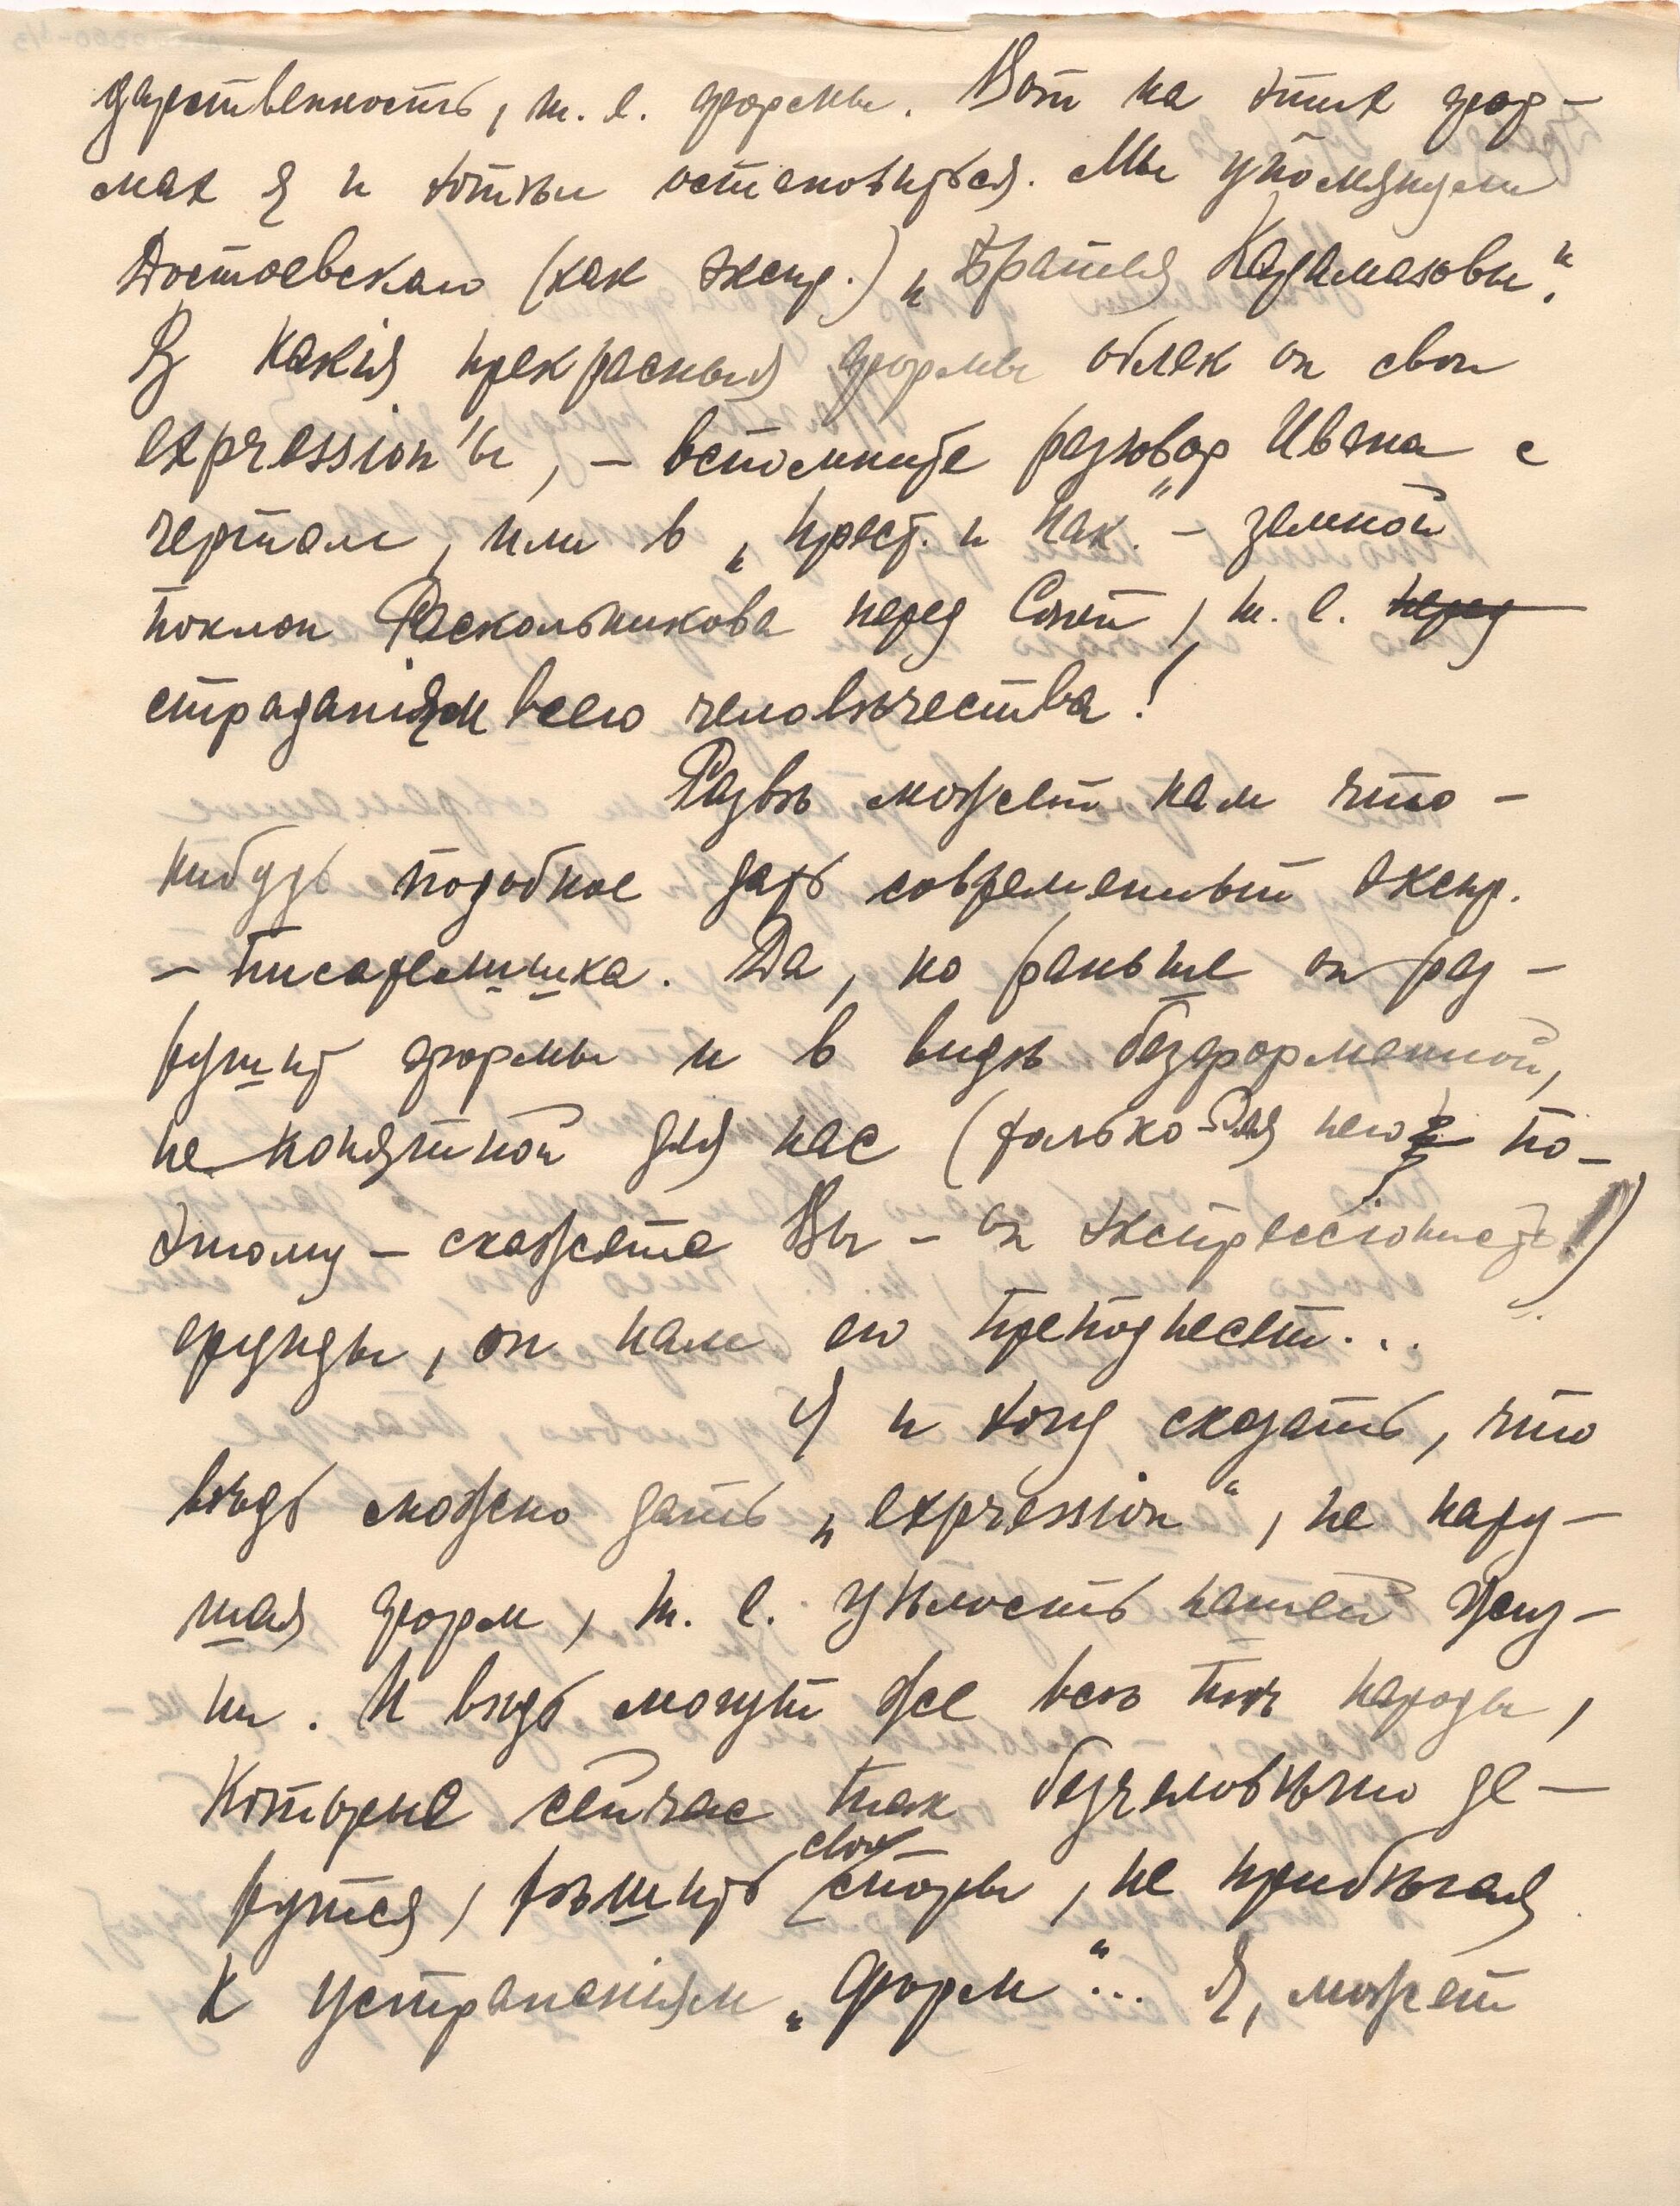 дарственность, т. е. формы. Вот на этих фор-
мах я и хотѣл остановиться. Мы упомянули
Достоевскаго (как экспр.) „Братья Карамазовы“.
В какія прекрасныя формы облек он свои
expression'ы, – вспомните разговор Ивана с
чертом, или в „Прест. и Нак.“ – земной
поклон Раскольникова перед Соней, т. е. перед
страданіям всего человѣчества!
Развѣ может нам что-
нибудь подобное дать современный экспр.
– писателишка. Да, но раньше он раз-
рушит формы и в видѣ безформенной,
не понятной для нас (только для него по-
этому – скажете Вы – он экспрессіонист)
ерунды, он нам его преподнесет...
Я и хочу сказать, что
вѣдь можно дать „expression“, не нару-
шая форм, т. е. цѣлость нашей жиз-
ни. И вѣдь могут же всѣ тѣ народы,
которые сейчас так безчеловѣчно де-
рутся, рѣшить свои споры, не прибѣгая
к устраненіям „форм“... Я, может